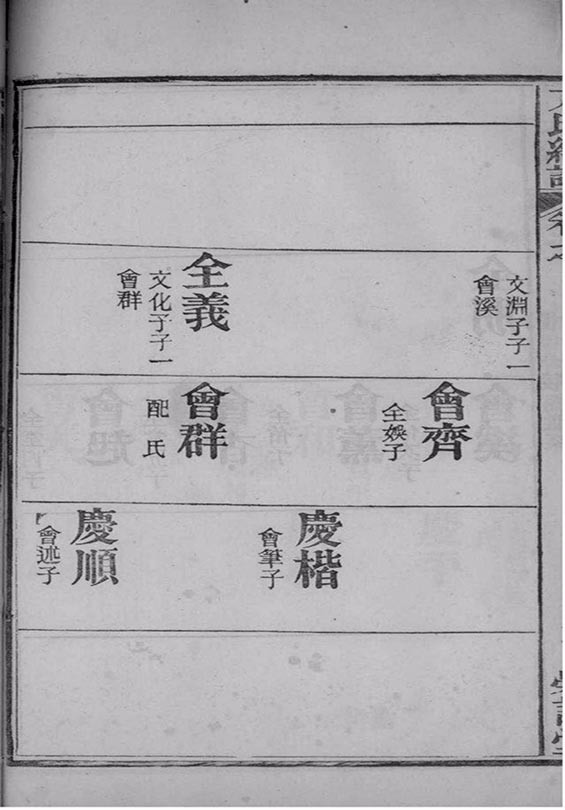 文淵子子一
會溪
全義
文化子子一
會群
會齊
全娛子
會群
配氏
慶楷
會筆子
慶順
會述子